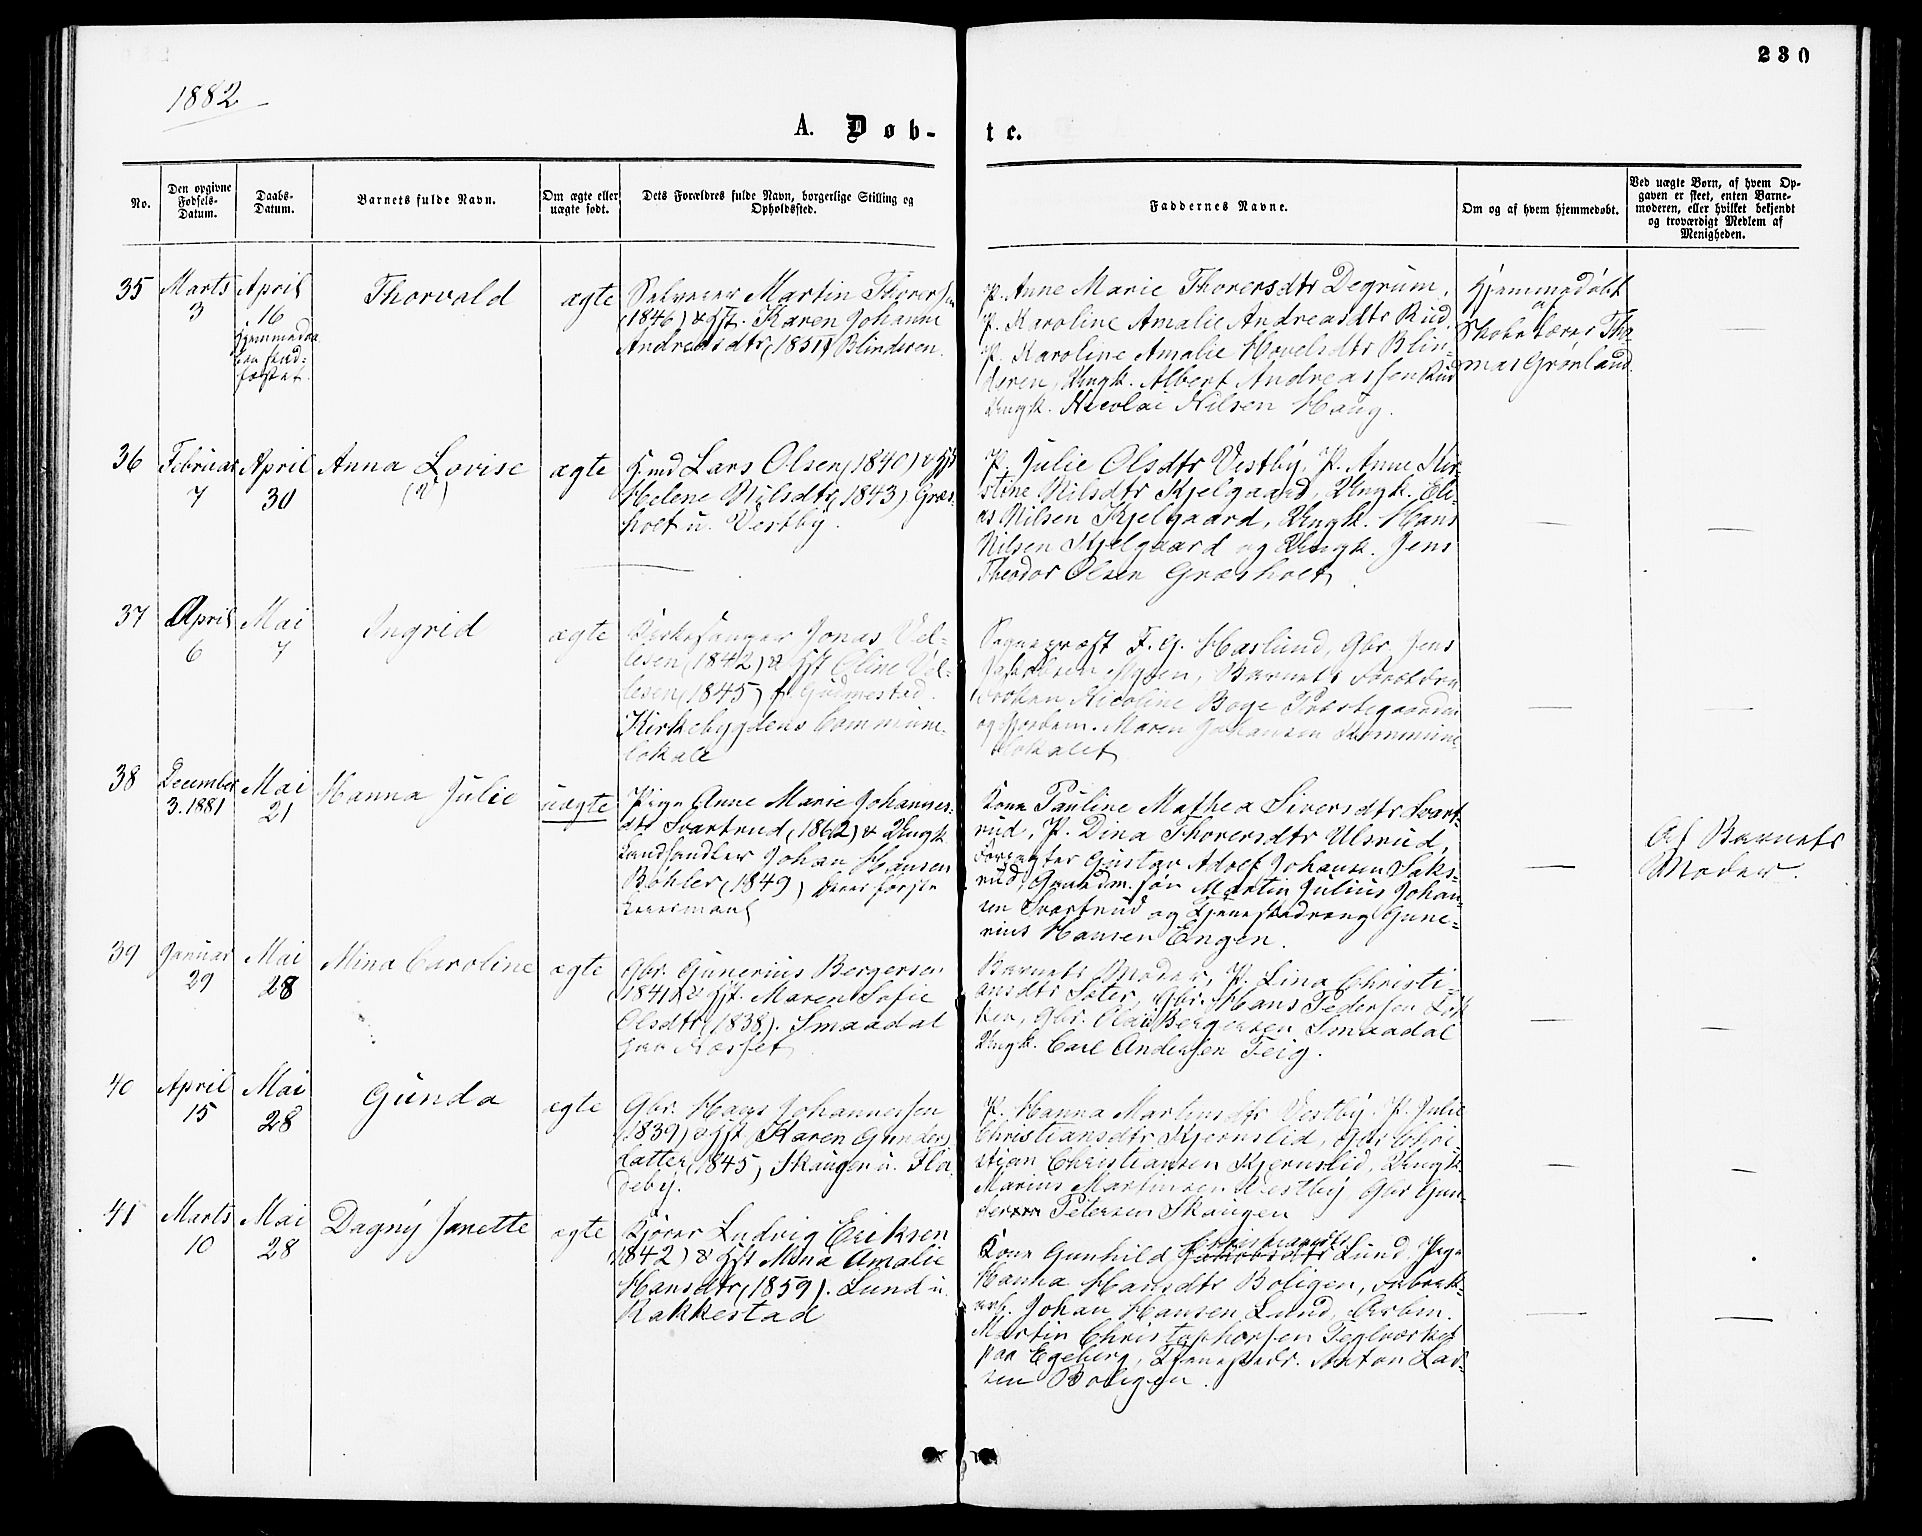 230
1882
A. Døb-
te.
No.
Den opgivne
Fødsels-
Datum.
Daabs-
Datum.
Barnets fulde Navn.
Om ægte eller
uægte født.
Dets Forældres fulde Navn, borgerlige Stilling og
Opholdssted.
Faddernes Navne.
Om og af hvem hjemmedøbt.
Ved uægte Børn, af hvem Op-
gaven er skeet, enten Barne-
moderen, eller hvilket bekjendt
og troværdigt Medlem af
Menigheden.
35
Marts
3
April
16
Thorvald
ægte
Selveier Martin Thoresen
(1846) & Hst. Karen Johanne
Andreasdtr (1851) Blinderen.
P. Anne Marie Thorersdtr Degrum,
P. Karoline Amalie Andreasdtr Rud,
P. Karoline Amalie Hovelsdtr Blin-
deren, Ungk. Albert Andreassen Rud
Ungk. Nicolai Nilsen Haug.
Hjemmedøbt
af
Skolelærer Tho-
mas Grønlund
36
Februar
7
April
30
Anna Lovise
ægte
Lars Olsen (1840) & Hst
Helene Nilsdtr (1843) Græs-
holt u. Vestby.
P. Julie Olsdtr Vestby, P. Anne Kir-
stine Nilsdtr Kjelgaard, Ungk. Eli-
as Nilsen Kjelgaard, Ungk. Hans
Nilsen Kjelgaard og Ungk. Jens
Theodor Olsen Græsholt
37
April
6
Mai
7
Ingrid
ægte
Kirkesanger Jonas Vel-
lesen (1842) & Hst Eline Vel-
lesen (1845) f. Gudmestad.
Kirkebygdens Commune-
lokale
Sogneprest F. G. Haslund, Gbr. Jens
Jakobsen Mysen, Barnets Forældre
Frøken Nicoline Boye Præstegaarden
og Maren Johansen Kommune
lokalet
38
December
3. 1881
Mai
21
Hanna Julie
uægte
Pige Anne Marie Johannes-
dtr Svartrud (1862) & Ungk.
Landhandler Johan Hansen
Bøhler (1849) deres første
Leiermaal
Kone Pauline Mathea Siversdtr Svart-
rud, P. Dina Thorersdtr Ulsrud,
Forpagter Gustav Adolf Johansen Saks-
rud, Gaardm. søn Martin Julius Johan-
sen Svartrud og Tjenestedreng Gune-
rius Hansen Engen.
Af Barnets
Moder.
39
Januar
29
Mai
28
Mina Caroline
ægte
Gbr. Gunerius Bergersen
(1841) & Hst. Maren Sofie
Olsdtr (1838). Smaadal
Barnets Moder, P. Lina Christi-
ansdtr Sæter, Gbr. Hans Pedersen Løk-
ken, Gbr. Olaus Bergersen Smaadal
Ungk. Carl Andersen Teig.
40
April
15
Mai
28
Gunda
ægte
Gbr. Hans Johannessen
(1839) & Hst Karen Gunders
datter (1845) Skaugen u. Flø-
deby.
P. Hanna Martinsdtr Vestby. P. Julie
Christiansdtr Kjernslid, Gbr Chri-
stian Christiansen Kjernslid, Ungk.
Marius Martinsen Vestby, Gbr Gun-
der Petersen Skaugen
41
Marts
10
Mai
28
Dagny Janette
ægte
Kjører Ludvig Eriksen
(1842) & Hst Mina Amalie
Hansdtr (1859). Lund u.
Rakkestad
Kone Gunhild Lund, Pige
Hanna Hansdtr Boligen, Fabrik-
arb. Johan Hansen Lund, Arbm.
Martin Christophersen Teglværket
paa Egeberg, Tjenestedr. Anton Lar-
sen Boligen.